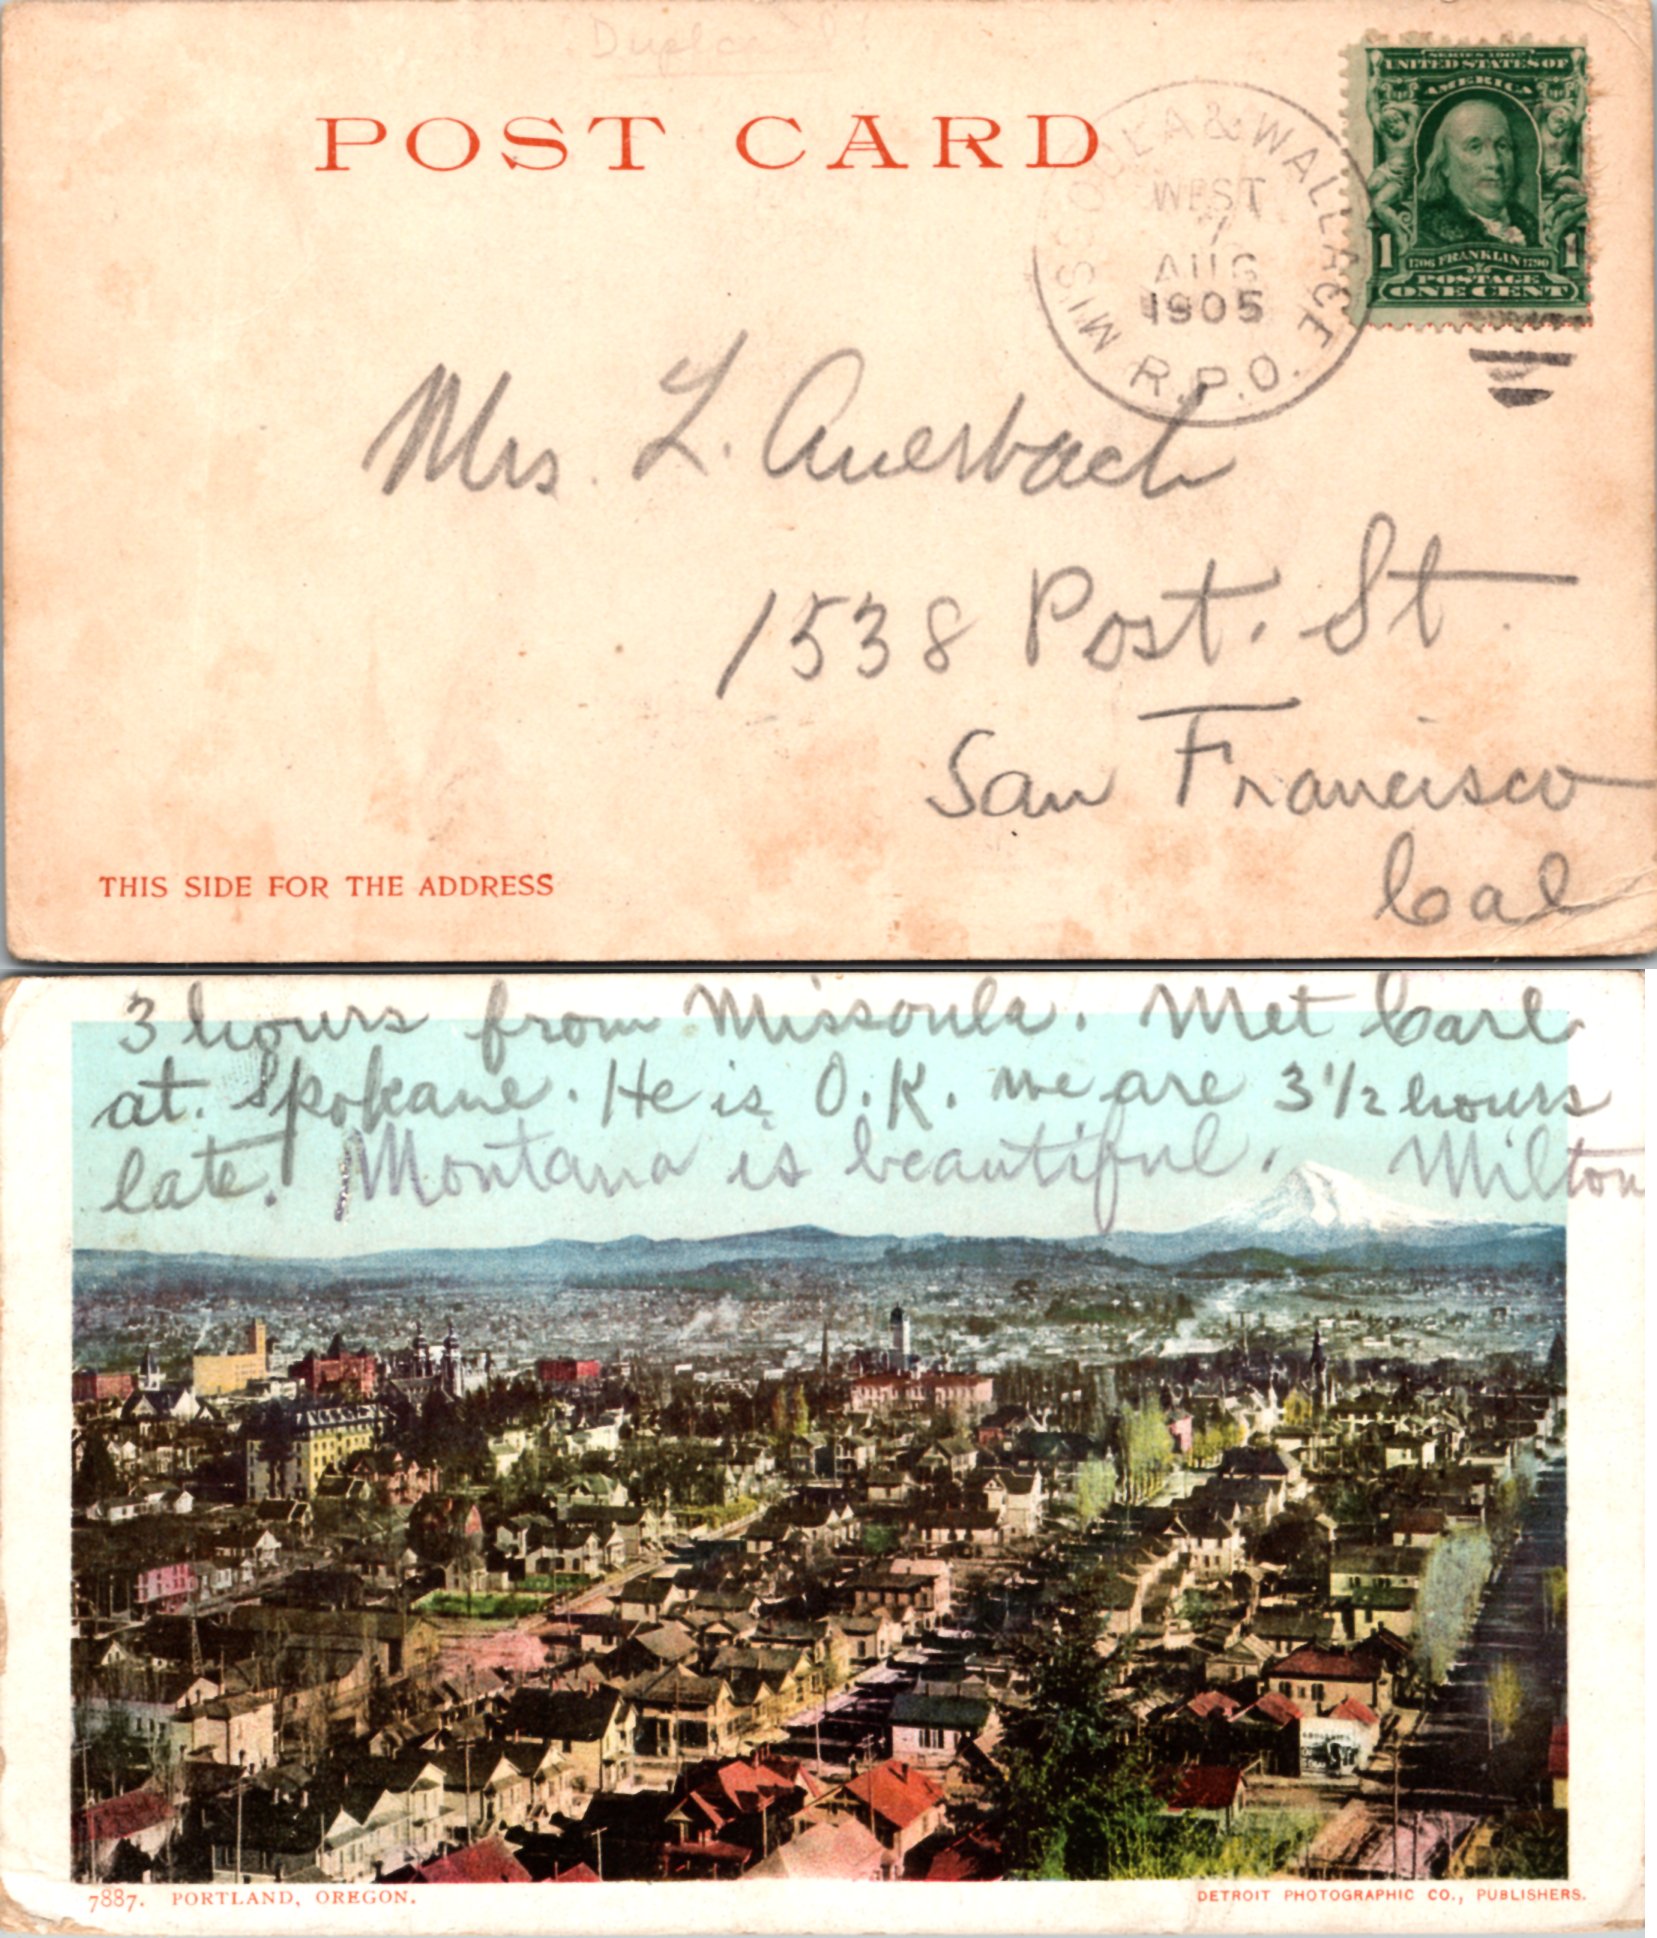 POST CARD
SERIES 1902
UNITED STATES OF
AMERICA
1 1706 FRANKLIN 1790 1
POSTAGE
ONE CENT
MISSOULA & WALLACE
WEST
7
AUG
1905
R.P.O.
Mrs. L. Auerbach
1538 Post. St.
San Francisco
Cal
THIS SIDE FOR THE ADDRESS
3 hours from Missoula. Met Carl
at. Spokane. He is O.K. we are 3 1/2 hours
late. Montana is beautiful. Milton
7887. PORTLAND, OREGON.
DETROIT PHOTOGRAPHIC CO., PUBLISHERS.